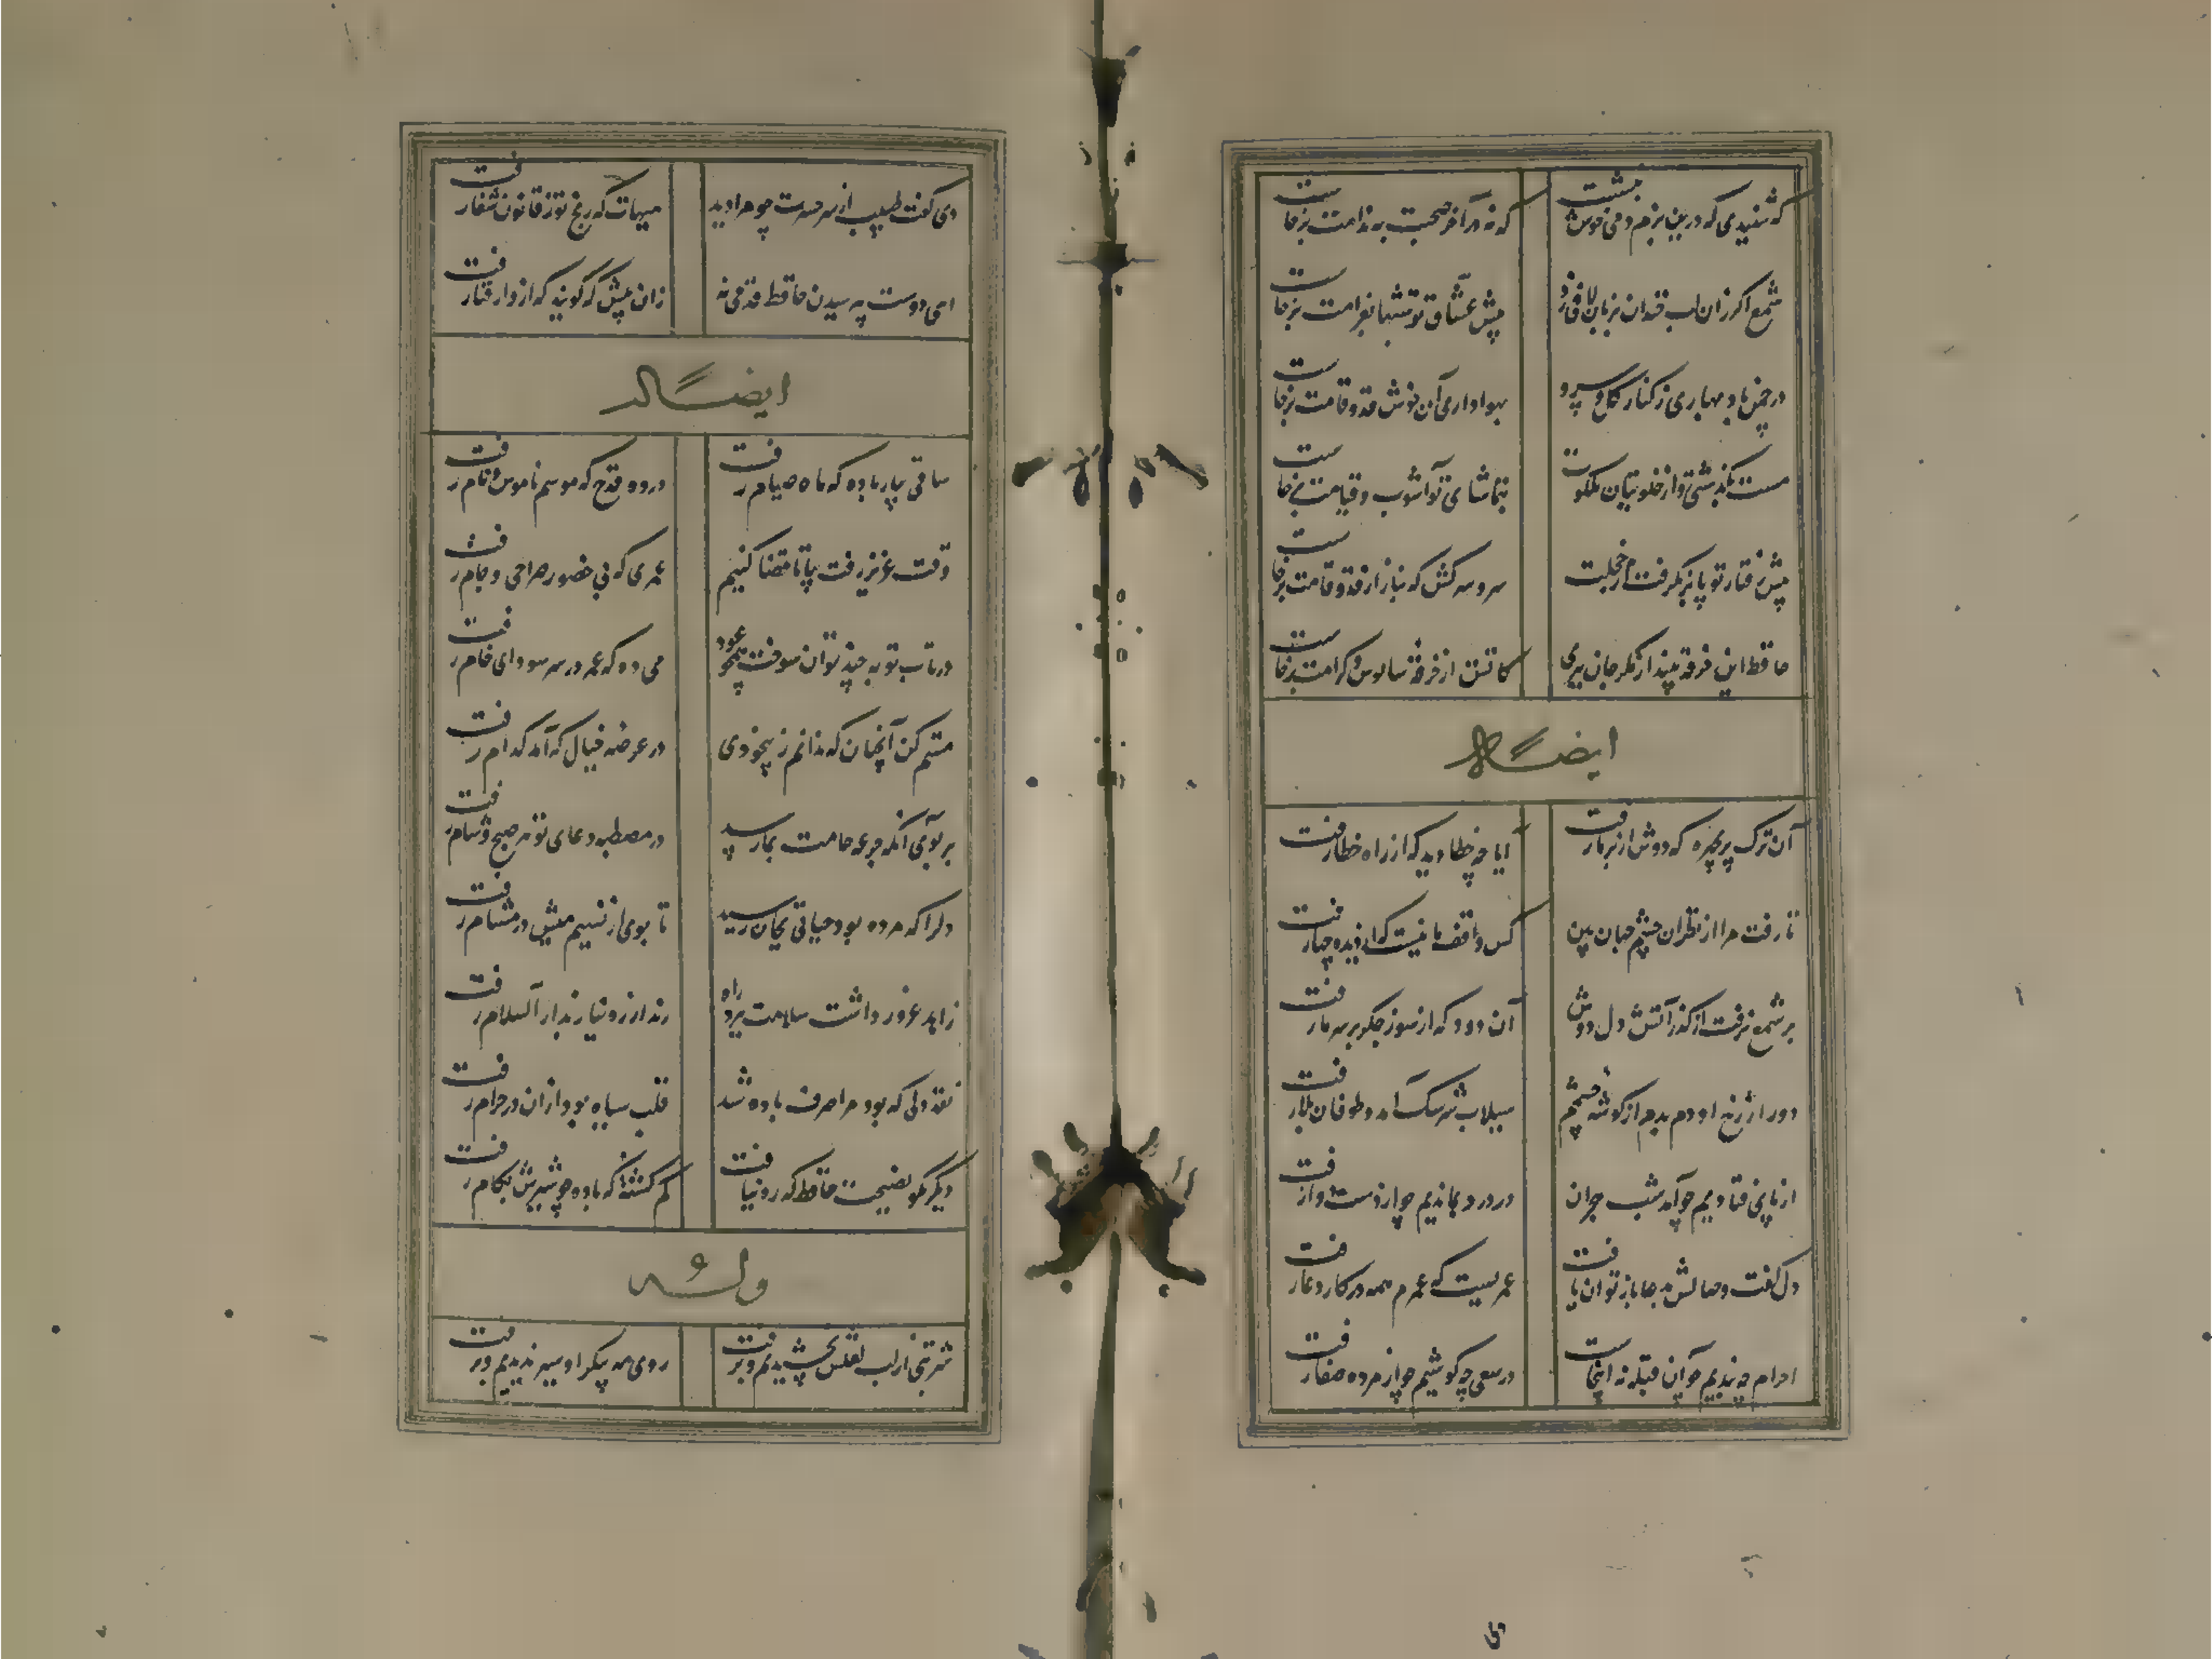 که شنیدی که درین بزم دمی خوش بنشست
که نه در آخر صحبت به ندامت برخاست
شمع اگر زان لب خندان بزبان لافی زد
پیش عشاق تو شبها بغرامت برخاست
در چمن باد بهاری ز کنار گل و سرو
بهواداری آن خوش قد و قامت برخاست
مست بگذشتی و از خلوتیان ملکوت
بتماشای تو آشوب و قیامت برخاست
پیش رفتار تو پا برنگرفت از خجلت
سرو سرکش که بناز از قد و قامت برخاست
حافظ این خرقه بینداز مگر جان ببری
کاتش از خرقه سالوس و کرامت برخاست
ایضاً له
آن ترک پریچهره که دوش از بر ما رفت
آیا چه خطا دید که از راه خطا رفت
تا رفت مرا از نظر آن چشم جهان بین
کس واقف ما نیست که از دیده چها رفت
بر شمع نرفت از گذر آتش دل دوش
آن دود که از سوز جگر بر سر ما رفت
دور از رخ او دم بدم از گوشه چشمم
سیلاب سرشک آمد و طوفان بلا رفت
از پای فتادیم چو آمد شب هجران
در درد بماندیم چو از دست دوا رفت
دل گفت وصالش بدعا باز توان یافت
عمریست که عمرم همه در کار دعا رفت
احرام چه بندیم چو آن قبله نه اینجاست
در سعی چه کوشیم چو از مروه صفا رفت
دی گفت طبیب از سر حسرت چو مرا دید
هیهات که رنج تو ز قانون شفا رفت
ای دوست بپرسیدن حافظ قدمی نه
زان پیش که گویند که از دار فنا رفت
ایضاً له
ساقی بیار باده که ماه صیام رفت
درده قدح که موسم ناموس و نام رفت
وقت عزیز رفت بیا تا قضا کنیم
عمری که بی حضور صراحی و جام رفت
در تاب توبه چند توان سوخت همچو عود
می ده که عمر در سر سودای خام رفت
مستم کن آنچنان که ندانم ز بیخودی
در عرضه خیال که آمد کدام رفت
بر بوی آنکه جرعه جامت بما رسید
در مصطبه دعای تو هر صبح و شام رفت
دلرا که مرده بود حیاتی بجان رسید
تا بوی از نسیم میش در مشام رفت
زاهد غرور داشت سلامت نبرد راه
رند از ره نیاز بدار السلام رفت
نقد دلی که بود مرا صرف باده شد
قلب سیاه بود از آن در حرام رفت
دیگر مگو نصیحت حافظ که ره نیافت
گم گشته که باده چو شیرین بکام رفت
وله
شربتی از لب لعلش نچشیدیم و برفت
روی مه پیکر او سیر ندیدیم و برفت